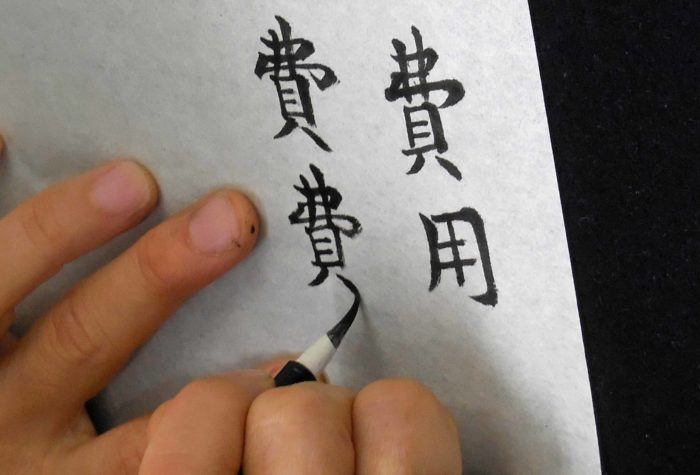 費用
費費